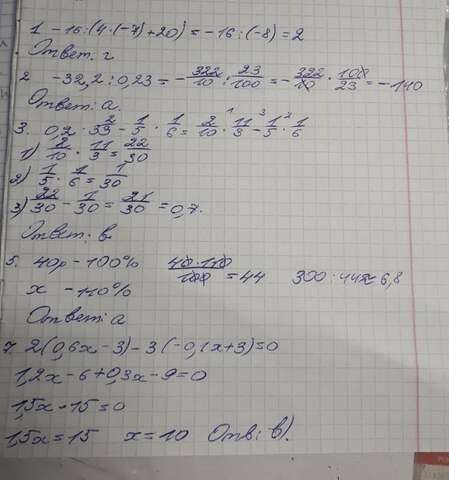 1. -16:(4·(-7)+20) = -16:(-8) = 2
Ответ: г
2 -32,2:0,23 = -322/10 : 23/100 = -322/10 · 100/23 = -140
Ответ: а.
3. 0,2 · 3 2/3 - 1/5 · 1/6 = 2/10 · 11/3 - 1/5 · 1/6
1) 2/10 · 11/3 = 22/30
2) 1/5 · 1/6 = 1/30
3) 22/30 - 1/30 = 21/30 = 0,7.
Ответ: в
5. 40р - 100% 40·110/100 = 44 300:44≈6,8
х - 110%
Ответ: а
7. 2(0,6х-3)-3(-0,1х+3)=0
1,2х-6+0,3х-9=0
1,5х-15=0
1,5х=15 х=10 Отв: в).